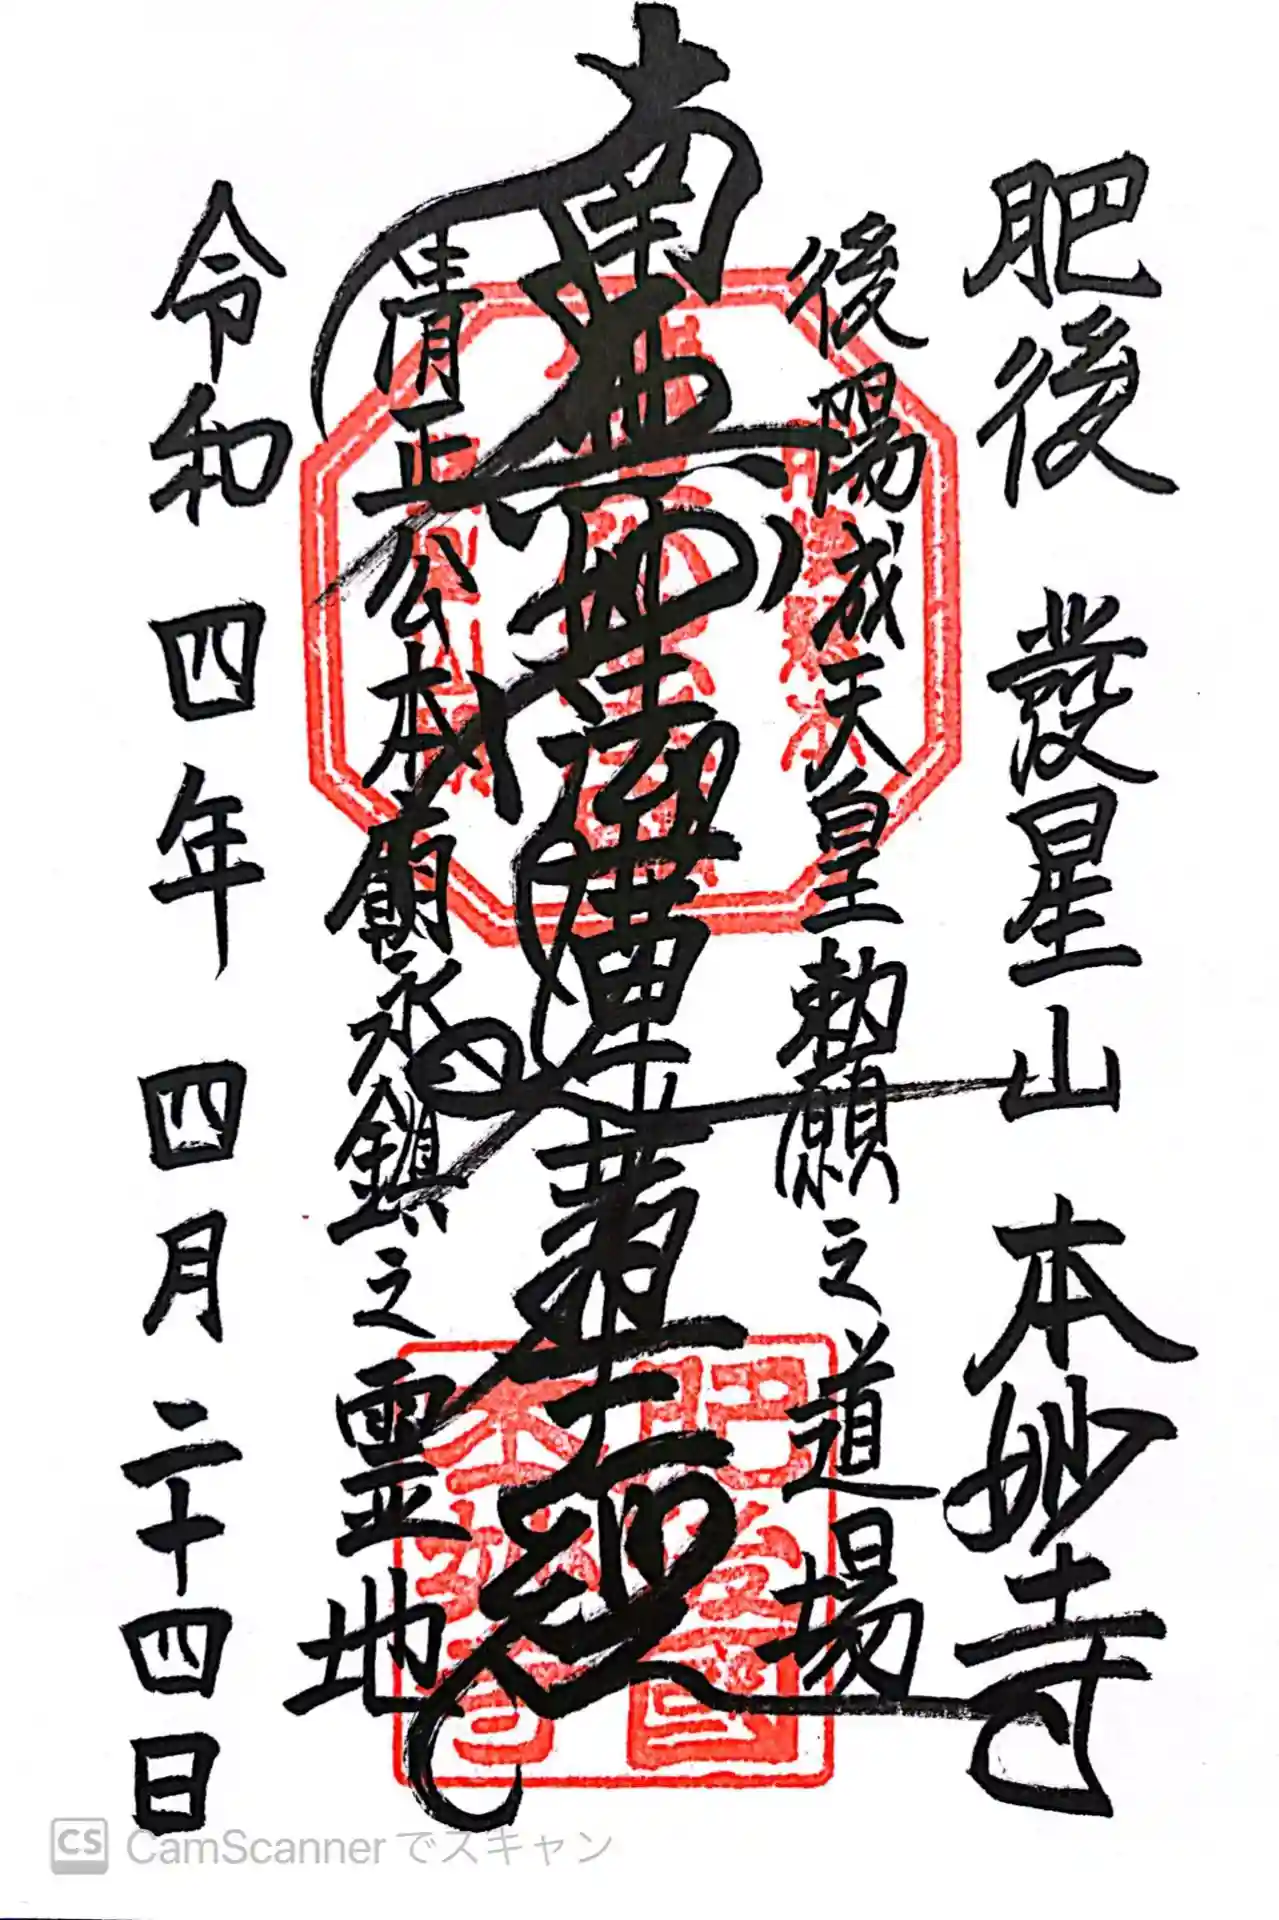 肥後 發星山 本妙寺
後陽成天皇勅願之道場
南無妙法蓮華経
清正公本廟永鎮之霊地
令和 四年 四月二十四日
肥後國
本妙寺
CS CamScannerでスキャン